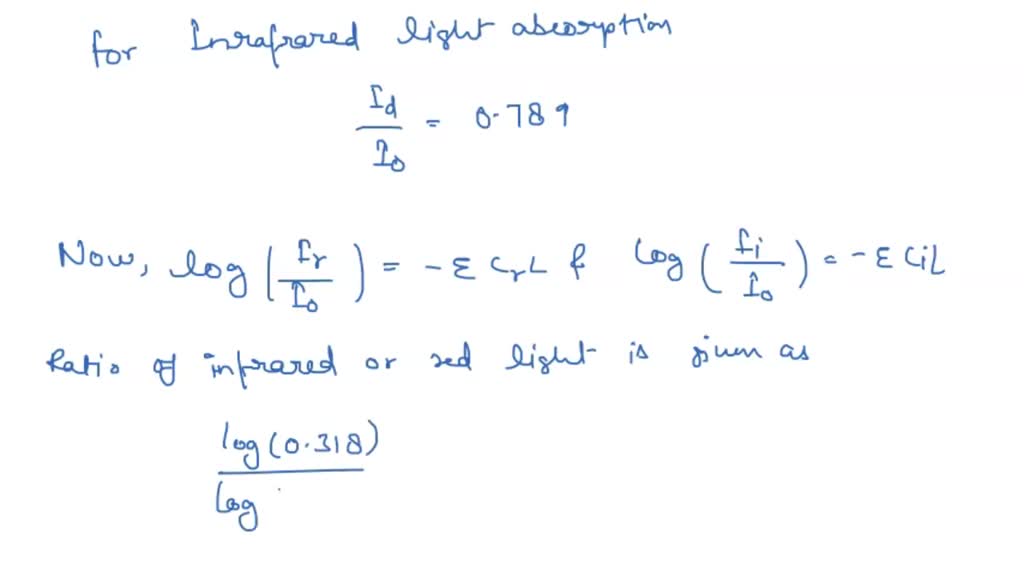 for Inrafrared light absorption
I_d / I_0 = 0.789
Now, log (I_r / I_0) = - ε C_r L & log (I_i / I_0) = - ε C_i L
Ratio of infrared or red light is given as
log (0.318)
log